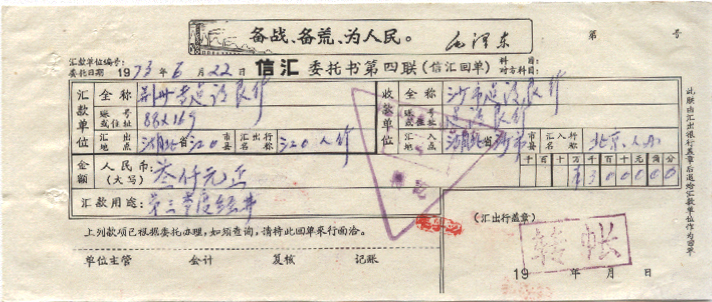 备战、备荒、为人民。 毛泽东
第 号
汇款单位编号:
委托日期 1973年6月22日 信汇 委托书第四联(信汇回单) 科 目:
对方科目:
汇款单位 全称 收款单位 全称 沙市建设银行
账号或住址 882169 账号或住址 建设银行
汇出地点 湖北省江0市县 汇出行名称 江0人行 汇入地点 湖北省沙市市县 汇入行名称 北京
金额 人民币:(大写) 叁仟元正 千百十万千百十元角分
¥300000
汇款用途: 第三季度经费
上列款项已根据委托办理,如须查询,请持此回单来行面洽。
(汇出行盖章)
转帐
单位主管 会计 复核 记账
19 年 月 日
此联由汇出银行盖章后退给汇款单位作为回单